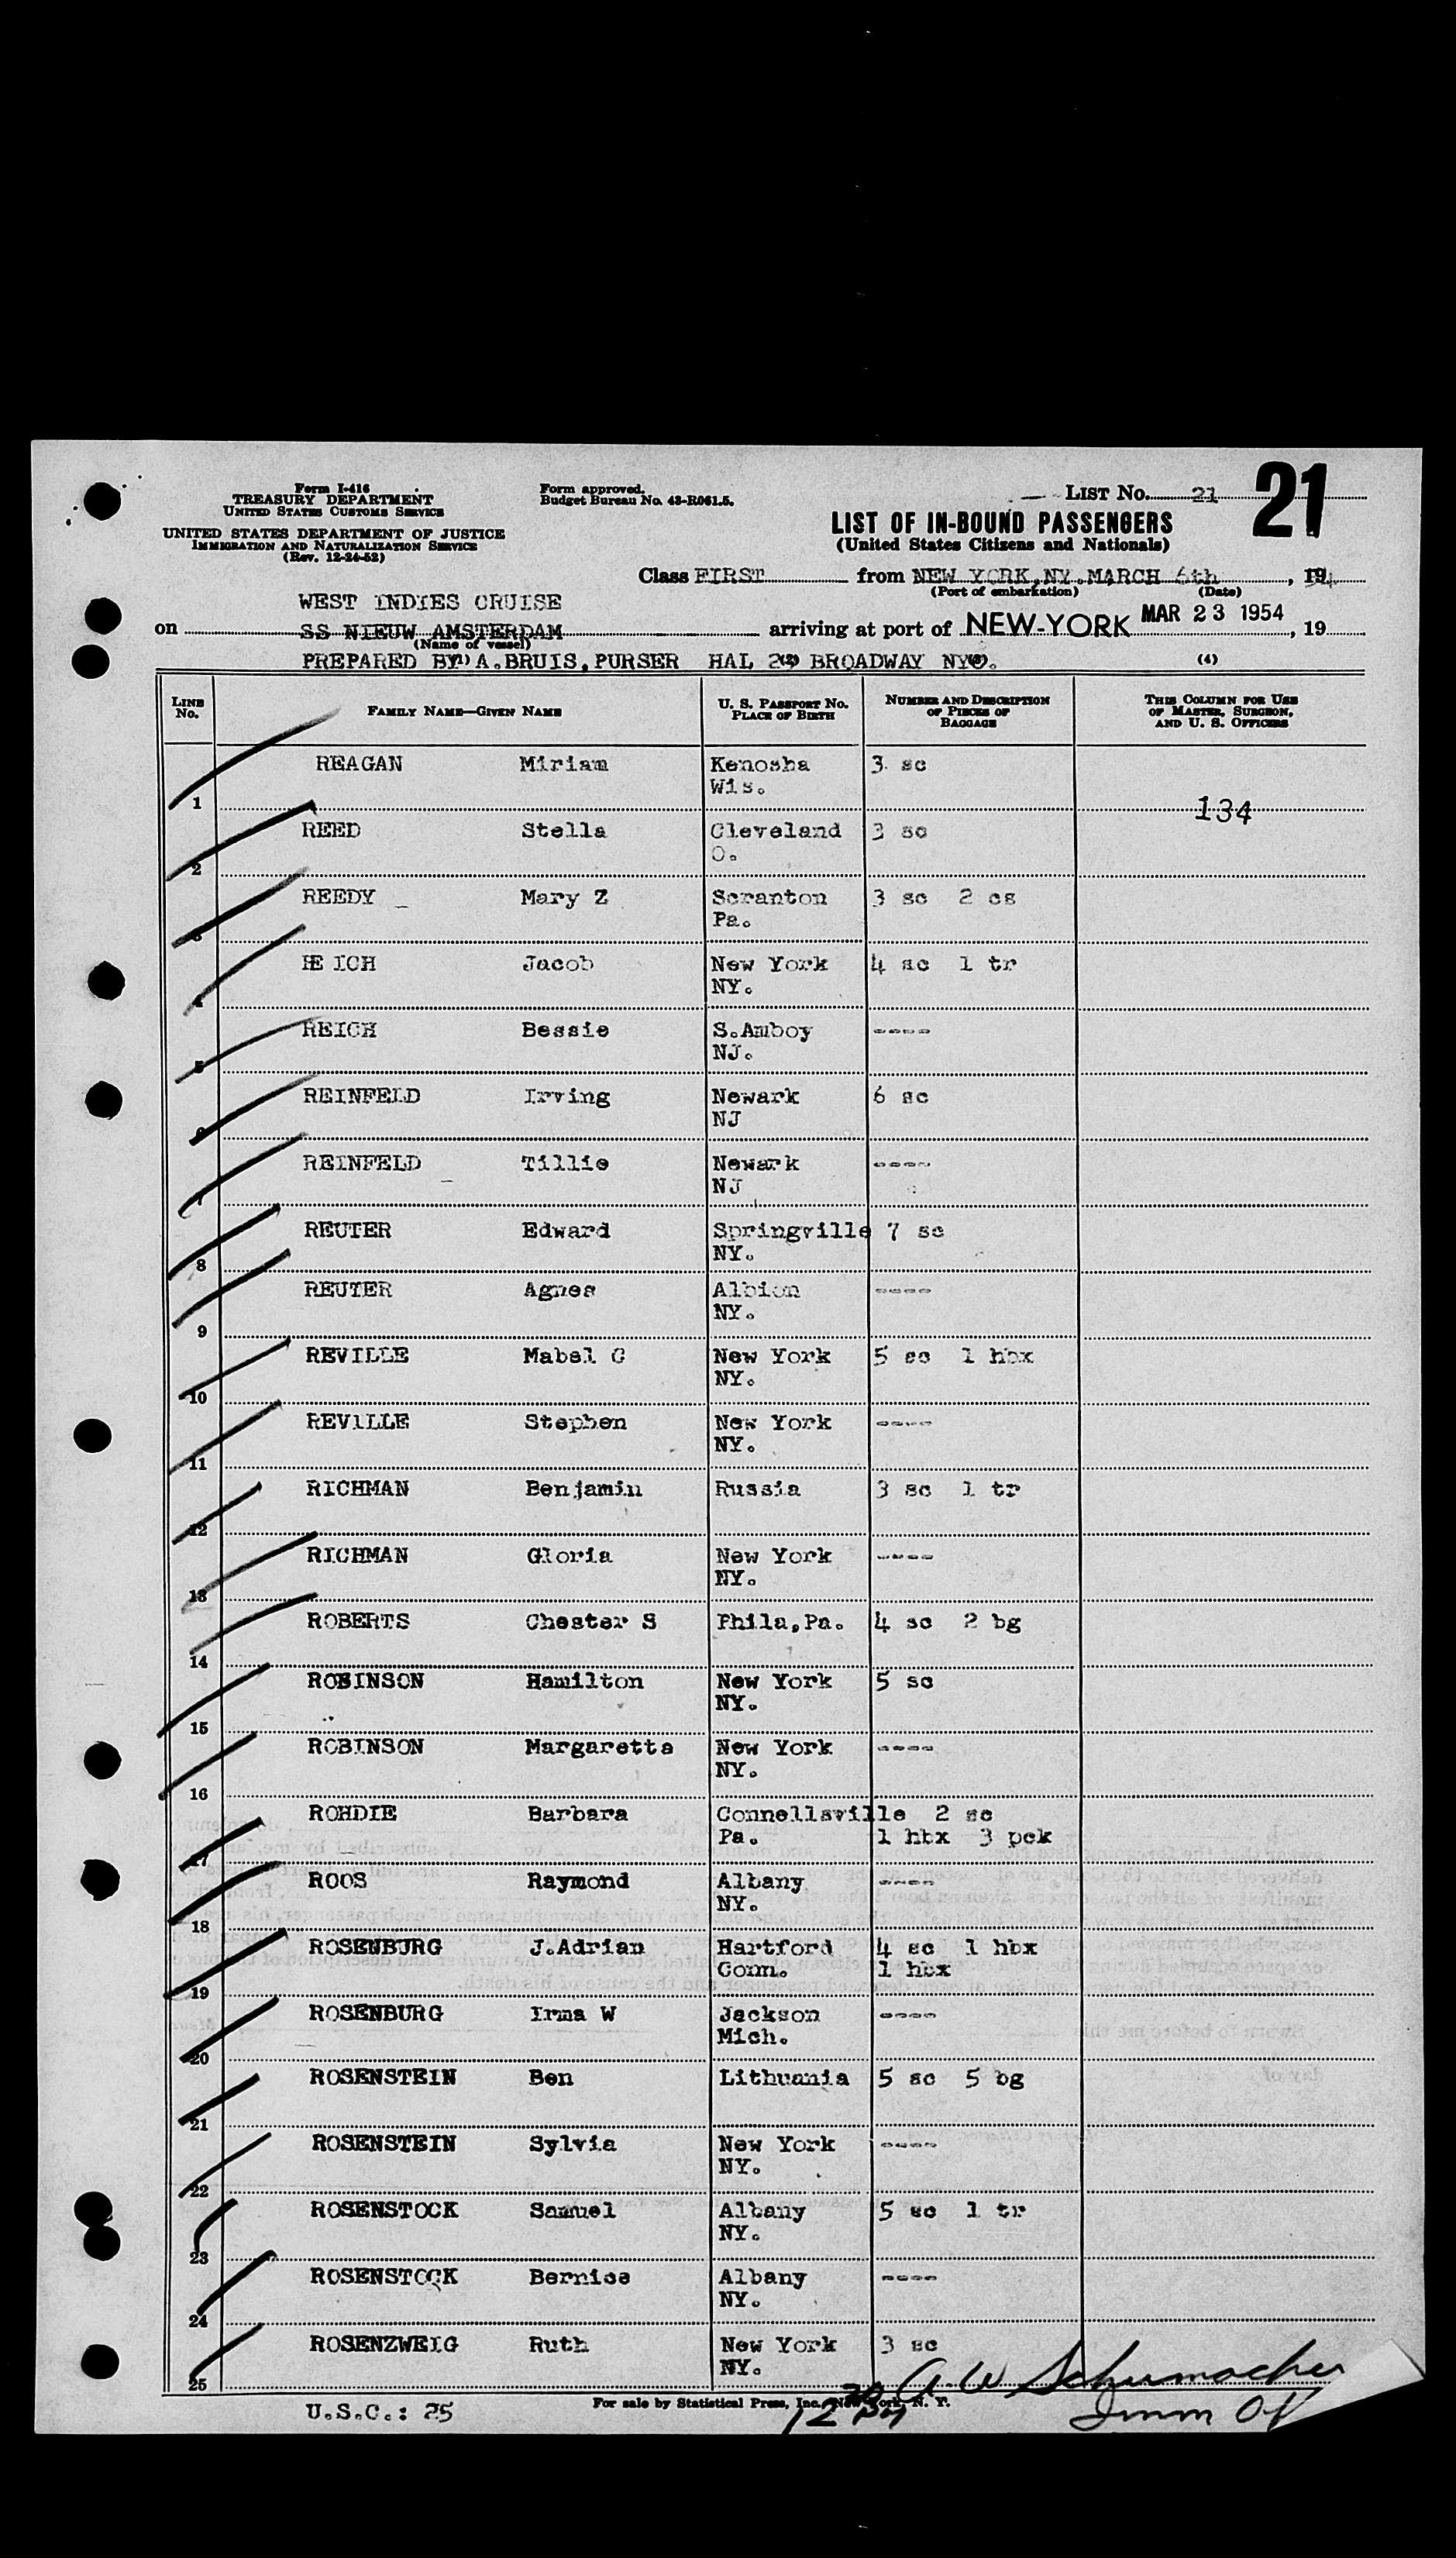 Form I-416
TREASURY DEPARTMENT
UNITED STATES CUSTOMS SERVICE
UNITED STATES DEPARTMENT OF JUSTICE
IMMIGRATION AND NATURALIZATION SERVICE
(Rev. 12-24-52)
Form approved.
Budget Bureau No. 43-R061.5.
LIST No. 21
21
LIST OF IN-BOUND PASSENGERS
(United States Citizens and Nationals)
Class FIRST from NEW YORK,NY.MARCH 6th, 1954
(Port of embarkation) (Date)
WEST INDIES CRUISE
on SS NIEUW AMSTERDAM arriving at port of NEW-YORK MAR 23 1954, 19
(Name of vessel)
PREPARED BY A.BRUIS,PURSER HAL 2 BROADWAY NYC.
(1) (2) (3) (4)
LINE No. FAMILY NAME—GIVEN NAME U. S. PASSPORT No. PLACE OF BIRTH NUMBER AND DESCRIPTION OF PIECES OF BAGGAGE THIS COLUMN FOR USE OF MASTER, SURGEON, AND U. S. OFFICERS
REAGAN Miriam Kenosha 3 sc
1 Wis.
134
REED Stella Cleveland 3 sc
2 O.
REEDY Mary Z Scranton 3 sc 2 cs
3 Pa.
RE ICH Jacob New York 4 sc 1 tr
4 NY.
REICH Bessie S.Amboy ----
5 NJ.
REINFELD Irving Newark 6 sc
6 NJ
REINFELD Tillie Newark ----
7 NJ
REUTER Edward Springville 7 sc
8 NY.
REUTER Agnes Albion ----
9 NY.
REVILLE Mabel C New York 5 sc 1 hbx
10 NY.
REVILLE Stephen New York ----
11 NY.
RICHMAN Benjamin Russia 3 sc 1 tr
12
RICHMAN Gloria New York ----
13 NY.
ROBERTS Chester S Phila,Pa. 4 sc 2 bg
14
ROBINSON Hamilton New York 5 sc
15 NY.
ROBINSON Margaretta New York ----
16 NY.
ROHDIE Barbara Connellsville 2 sc
17 Pa. 1 hbx 3 pck
ROOS Raymond Albany ----
18 NY.
ROSENBURG J.Adrian Hartford 4 sc 1 hbx
19 Conn. 1 hbx
ROSENBURG Irma W Jackson ----
20 Mich.
ROSENSTEIN Ben Lithuania 5 sc 5 bg
21
ROSENSTEIN Sylvia New York ----
22 NY.
ROSENSTOCK Samuel Albany 5 sc 1 tr
23 NY.
ROSENSTOCK Bernice Albany ----
24 NY.
ROSENZWEIG Ruth New York 3 sc
25 NY.
A W Schumacher
For sale by Statistical Press, Inc., New York, N. Y.
U.S.C.: 25
12 30 PM
Imm Of